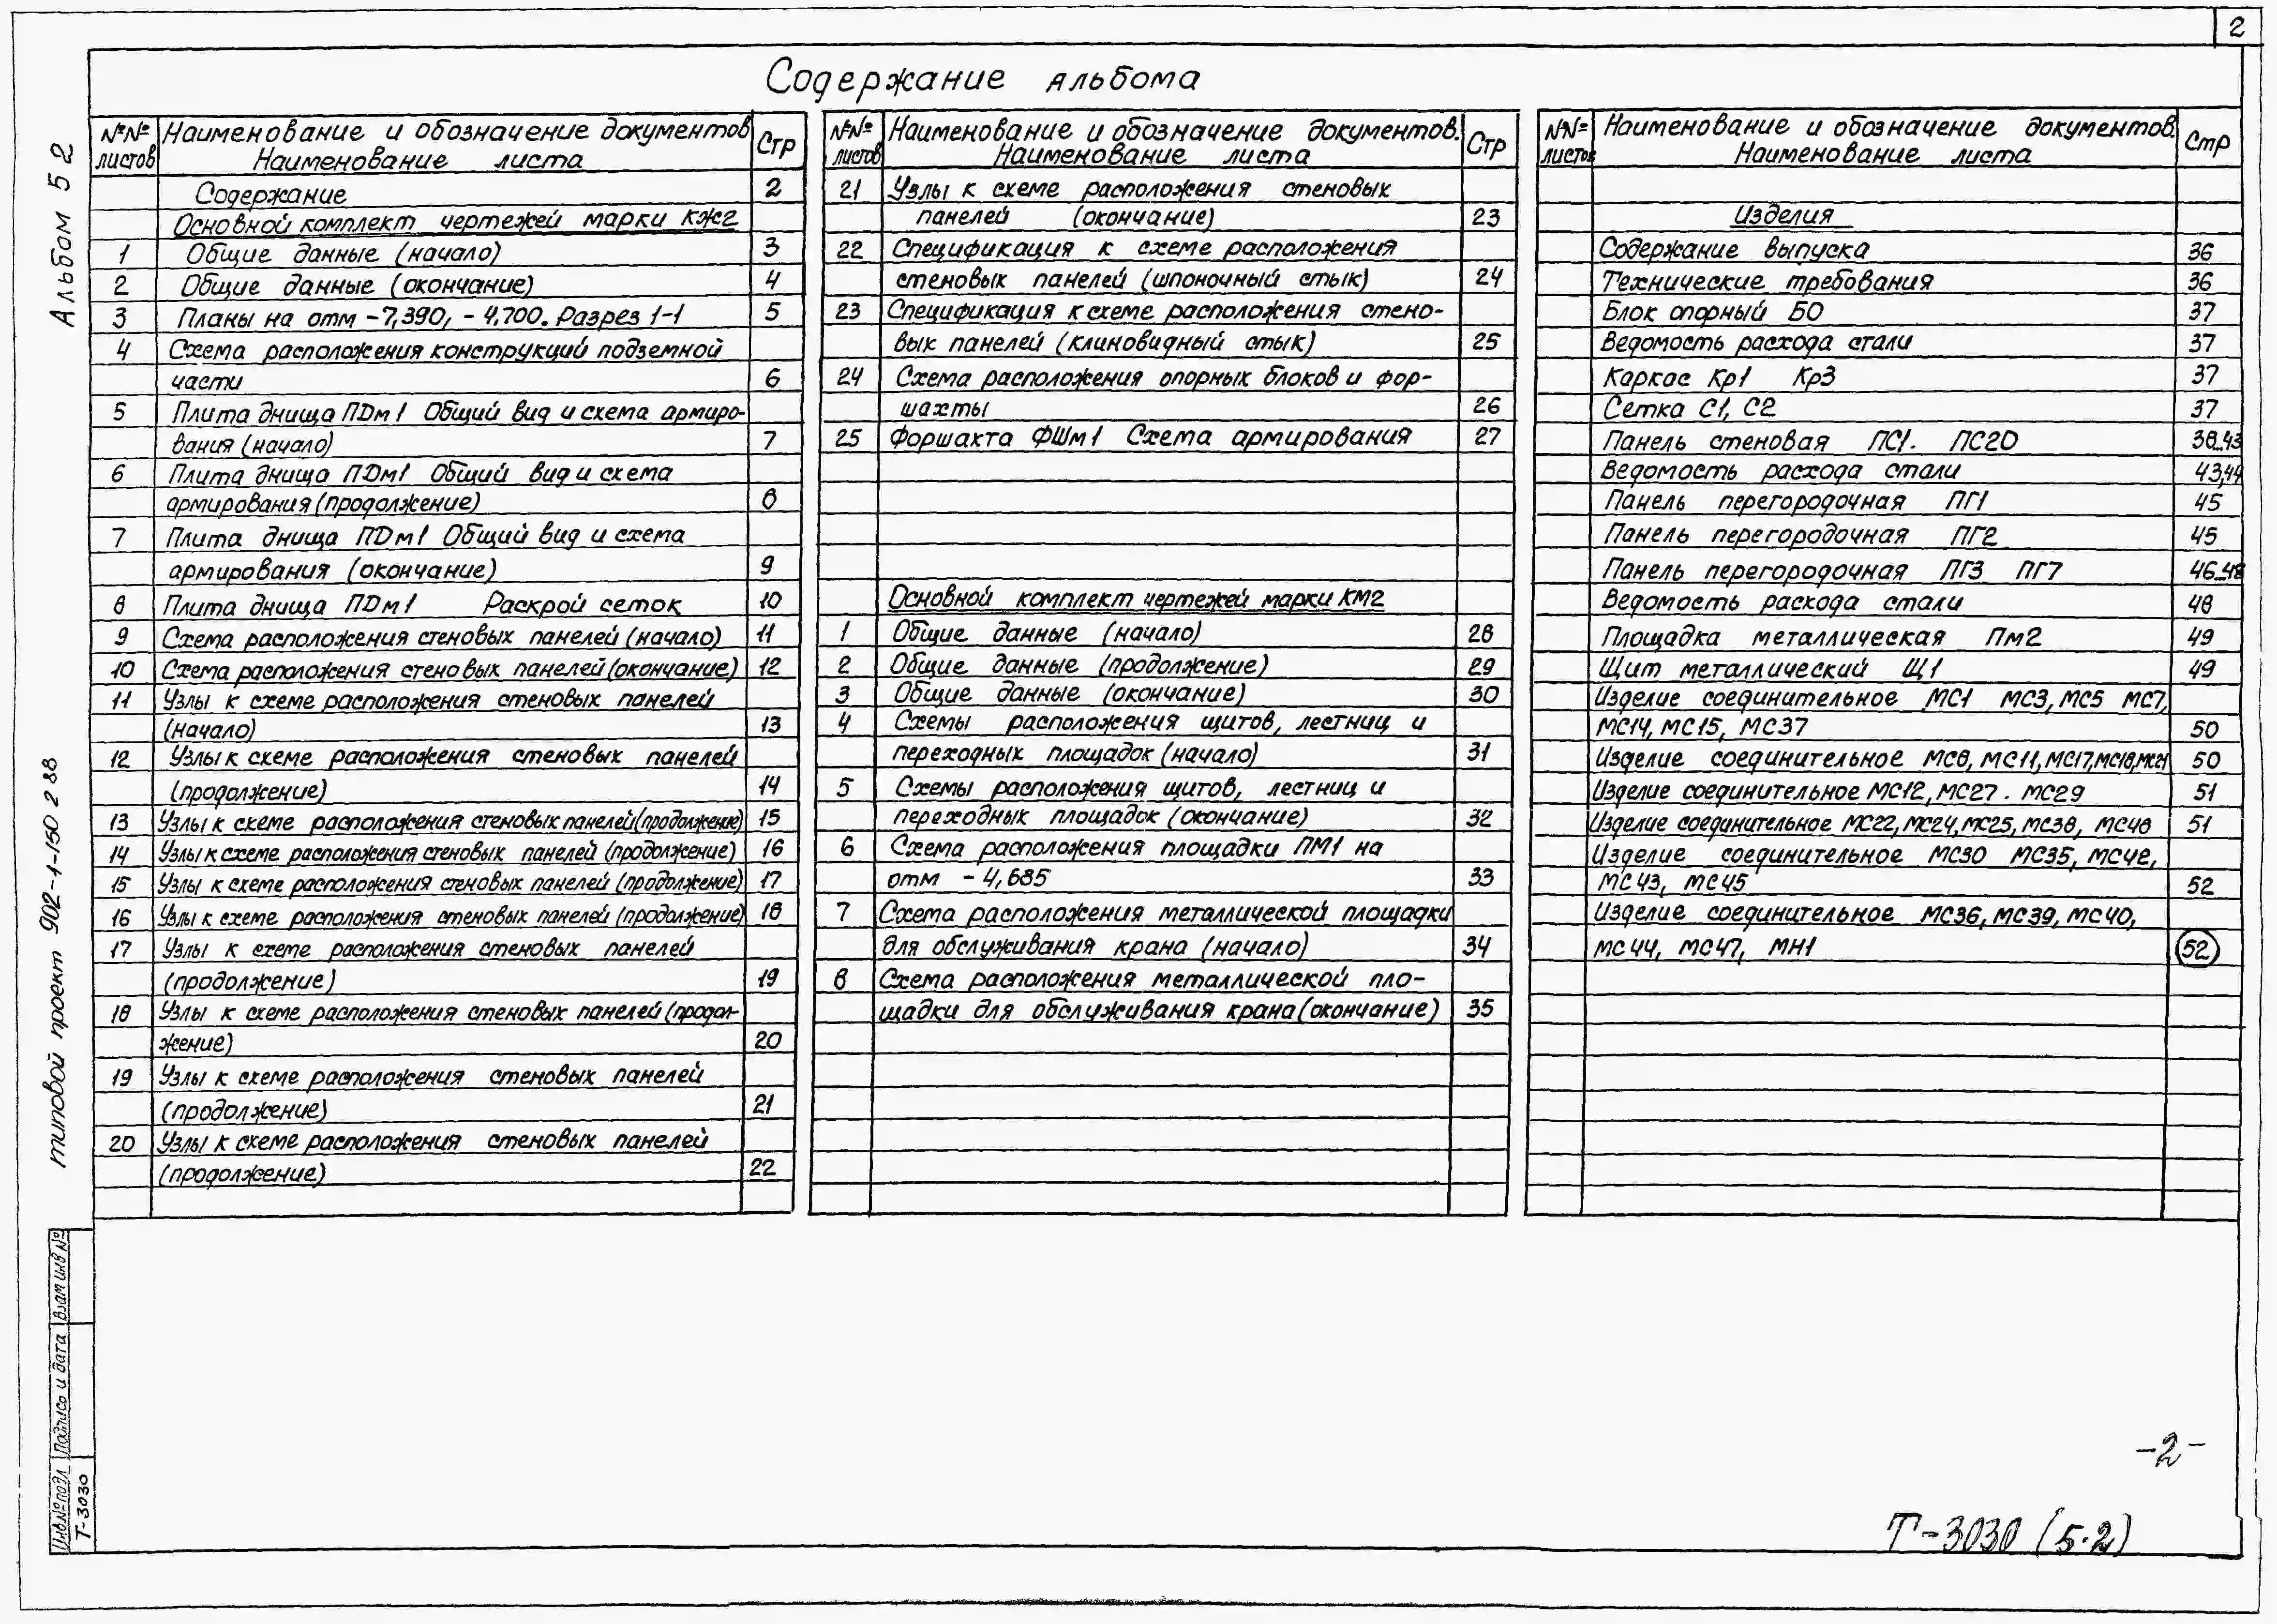 2
Содержание альбома
Альбом 5 2
типовой проект 902-1-150 2 88
№№ листов
Наименование и обозначение документов
Наименование листа
Стр
Содержание 2
Основной комплект чертежей марки КЖ2
1 Общие данные (начало) 3
2 Общие данные (окончание) 4
3 Планы на отм -7,390, -4,700. Разрез 1-1 5
4 Схема расположения конструкций подземной
части 6
5 Плита днища ПДм1 Общий вид и схема армиро-
вания (начало) 7
6 Плита днища ПДм1 Общий вид и схема
армирования (продолжение) 8
7 Плита днища ПДм1 Общий вид и схема
армирования (окончание) 9
8 Плита днища ПДм1 Раскрой сеток 10
9 Схема расположения стеновых панелей (начало) 11
10 Схема расположения стеновых панелей (окончание) 12
11 Узлы к схеме расположения стеновых панелей
(начало) 13
12 Узлы к схеме расположения стеновых панелей
(продолжение) 14
13 Узлы к схеме расположения стеновых панелей (продолжение) 15
14 Узлы к схеме расположения стеновых панелей (продолжение) 16
15 Узлы к схеме расположения стеновых панелей (продолжение) 17
16 Узлы к схеме расположения стеновых панелей (продолжение) 18
17 Узлы к схеме расположения стеновых панелей
(продолжение) 19
18 Узлы к схеме расположения стеновых панелей (продол-
жение) 20
19 Узлы к схеме расположения стеновых панелей
(продолжение) 21
20 Узлы к схеме расположения стеновых панелей
(продолжение) 22
№№ листов
Наименование и обозначение документов.
Наименование листа
Стр
21 Узлы к схеме расположения стеновых
панелей (окончание) 23
22 Спецификация к схеме расположения
стеновых панелей (шпоночный стык) 24
23 Спецификация к схеме расположения стено-
вых панелей (клиновидный стык) 25
24 Схема расположения опорных блоков и фор-
шахты 26
25 Форшахта ФШм1 Схема армирования 27
Основной комплект чертежей марки КМ2
1 Общие данные (начало) 28
2 Общие данные (продолжение) 29
3 Общие данные (окончание) 30
4 Схемы расположения щитов, лестниц и
переходных площадок (начало) 31
5 Схемы расположения щитов, лестниц и
переходных площадок (окончание) 32
6 Схема расположения площадки ПМ1 на
отм -4,685 33
7 Схема расположения металлической площадки
для обслуживания крана (начало) 34
8 Схема расположения металлической пло-
щадки для обслуживания крана (окончание) 35
№№ листов
Наименование и обозначение документов.
Наименование листа
Стр
Изделия
Содержание выпуска 36
Технические требования 36
Блок опорный БО 37
Ведомость расхода стали 37
Каркас Кр1 Кр3 37
Сетка С1, С2 37
Панель стеновая ПС1. ПС20 38..43
Ведомость расхода стали 43,44
Панель перегородочная ПГ1 45
Панель перегородочная ПГ2 45
Панель перегородочная ПГ3 ПГ7 46..48
Ведомость расхода стали 48
Площадка металлическая Пм2 49
Щит металлический Щ1 49
Изделие соединительное МС1 МС3, МС5 МС7,
МС14, МС15, МС37 50
Изделие соединительное МС8, МС11, МС17, МС18, МС21 50
Изделие соединительное МС12, МС27. МС29 51
Изделие соединительное МС22, МС24, МС25, МС38, МС48 51
Изделие соединительное МС30 МС35, МС42,
МС43, МС45 52
Изделие соединительное МС36, МС39, МС40,
МС44, МС47, МН1 52
Инв № подл
Подпись и дата
Взам инв №
Т-3030
-2-
Т-3030 (5.2)